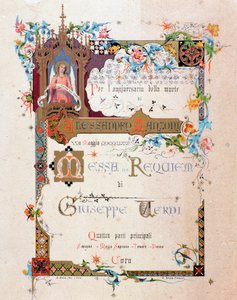 Per l'anniversario della morte
di
ALESSANDRO MANZONI
XXII Maggio MDCCCLXXIV
MESSA da REQUIEM
di
GIUSEPPE VERDI
Quattro parti principali
Soprano - Mezzo Soprano - Tenore - Basso
e
Coro